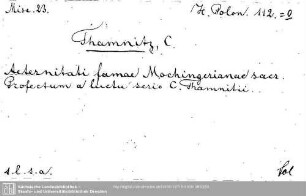 Misc. 23.
H. Polon. 112. =2
Thamnitz, C.
Aeternitati famae Mochingerianae sacr.
Profectum a luctu serio C. Thamnitii.
s. l. s. a.
fol
Sächsische Landesbibliothek -
Staats- und Universitätsbibliothek Dresden